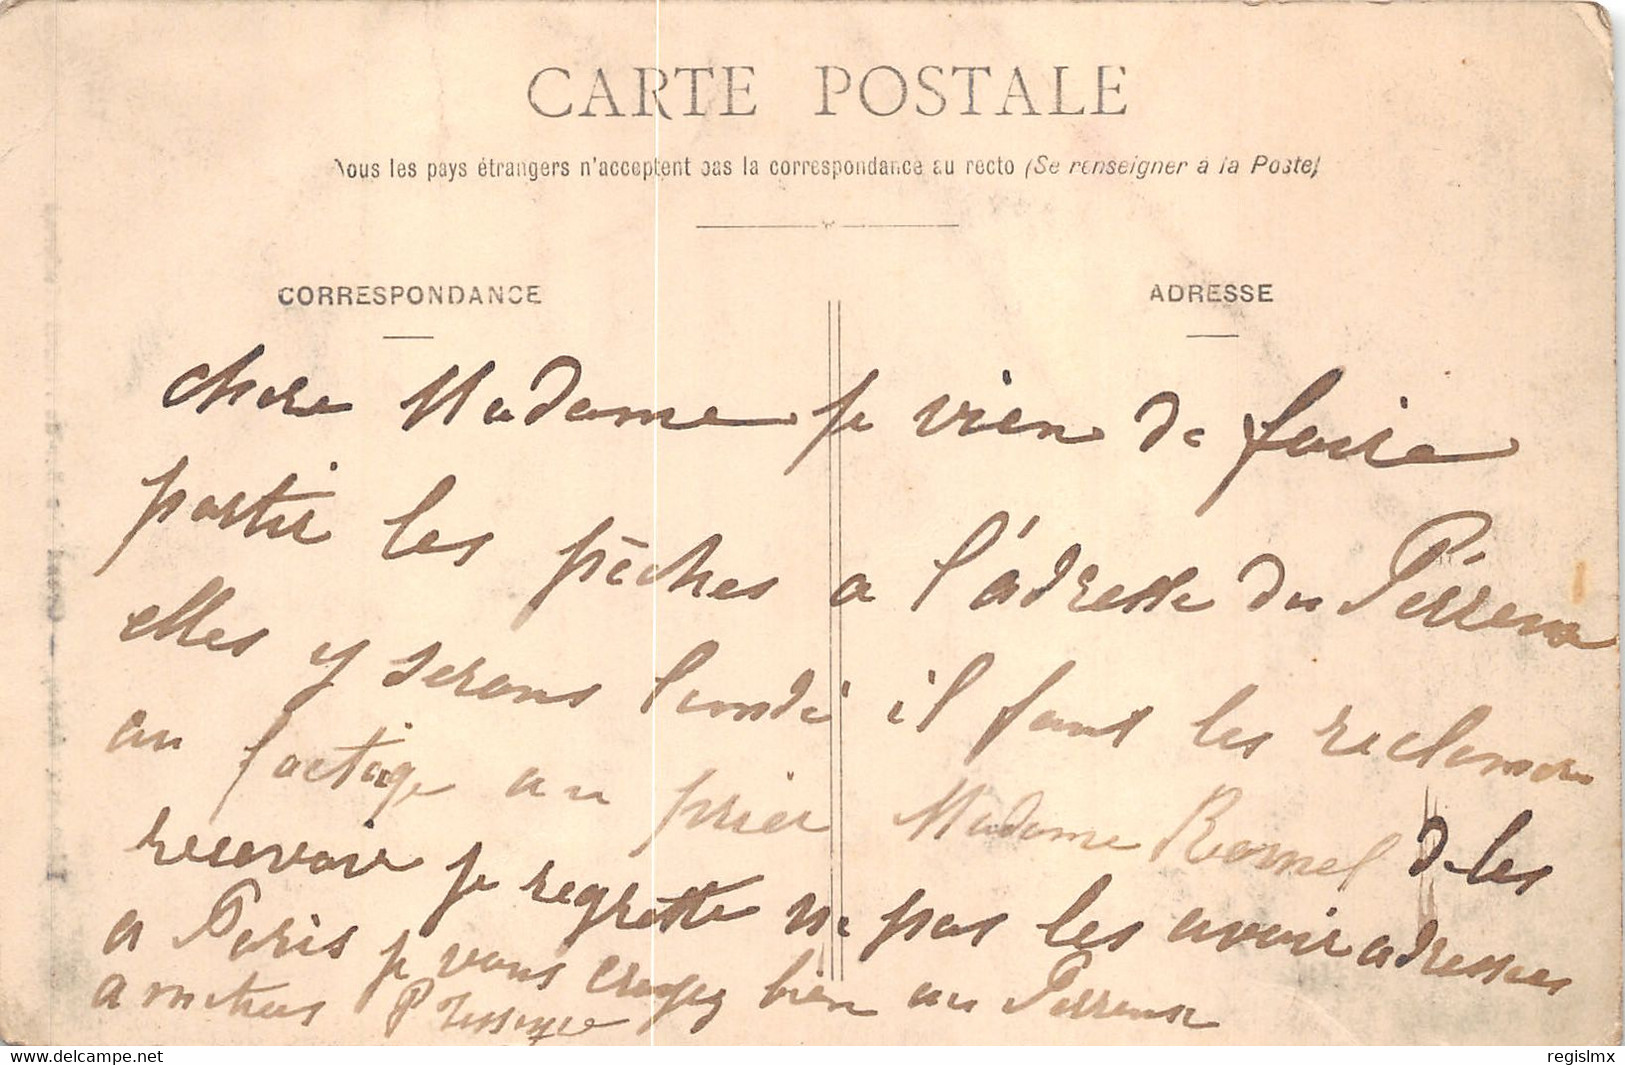 CARTE POSTALE
Tous les pays étrangers n'acceptent pas la correspondance au recto (Se renseigner à la Poste)
CORRESPONDANCE
ADRESSE
chere Madame je vien de faire
partir les pêches a l'adresse du Perreux
elles y serons lundi il faut les reclamer
au factage ou prier Madame de les
recevoir je regrette ne pas les avoir adressees
a Paris je vous croyez bien au Perreux
amities
delcampe.net
regislmx